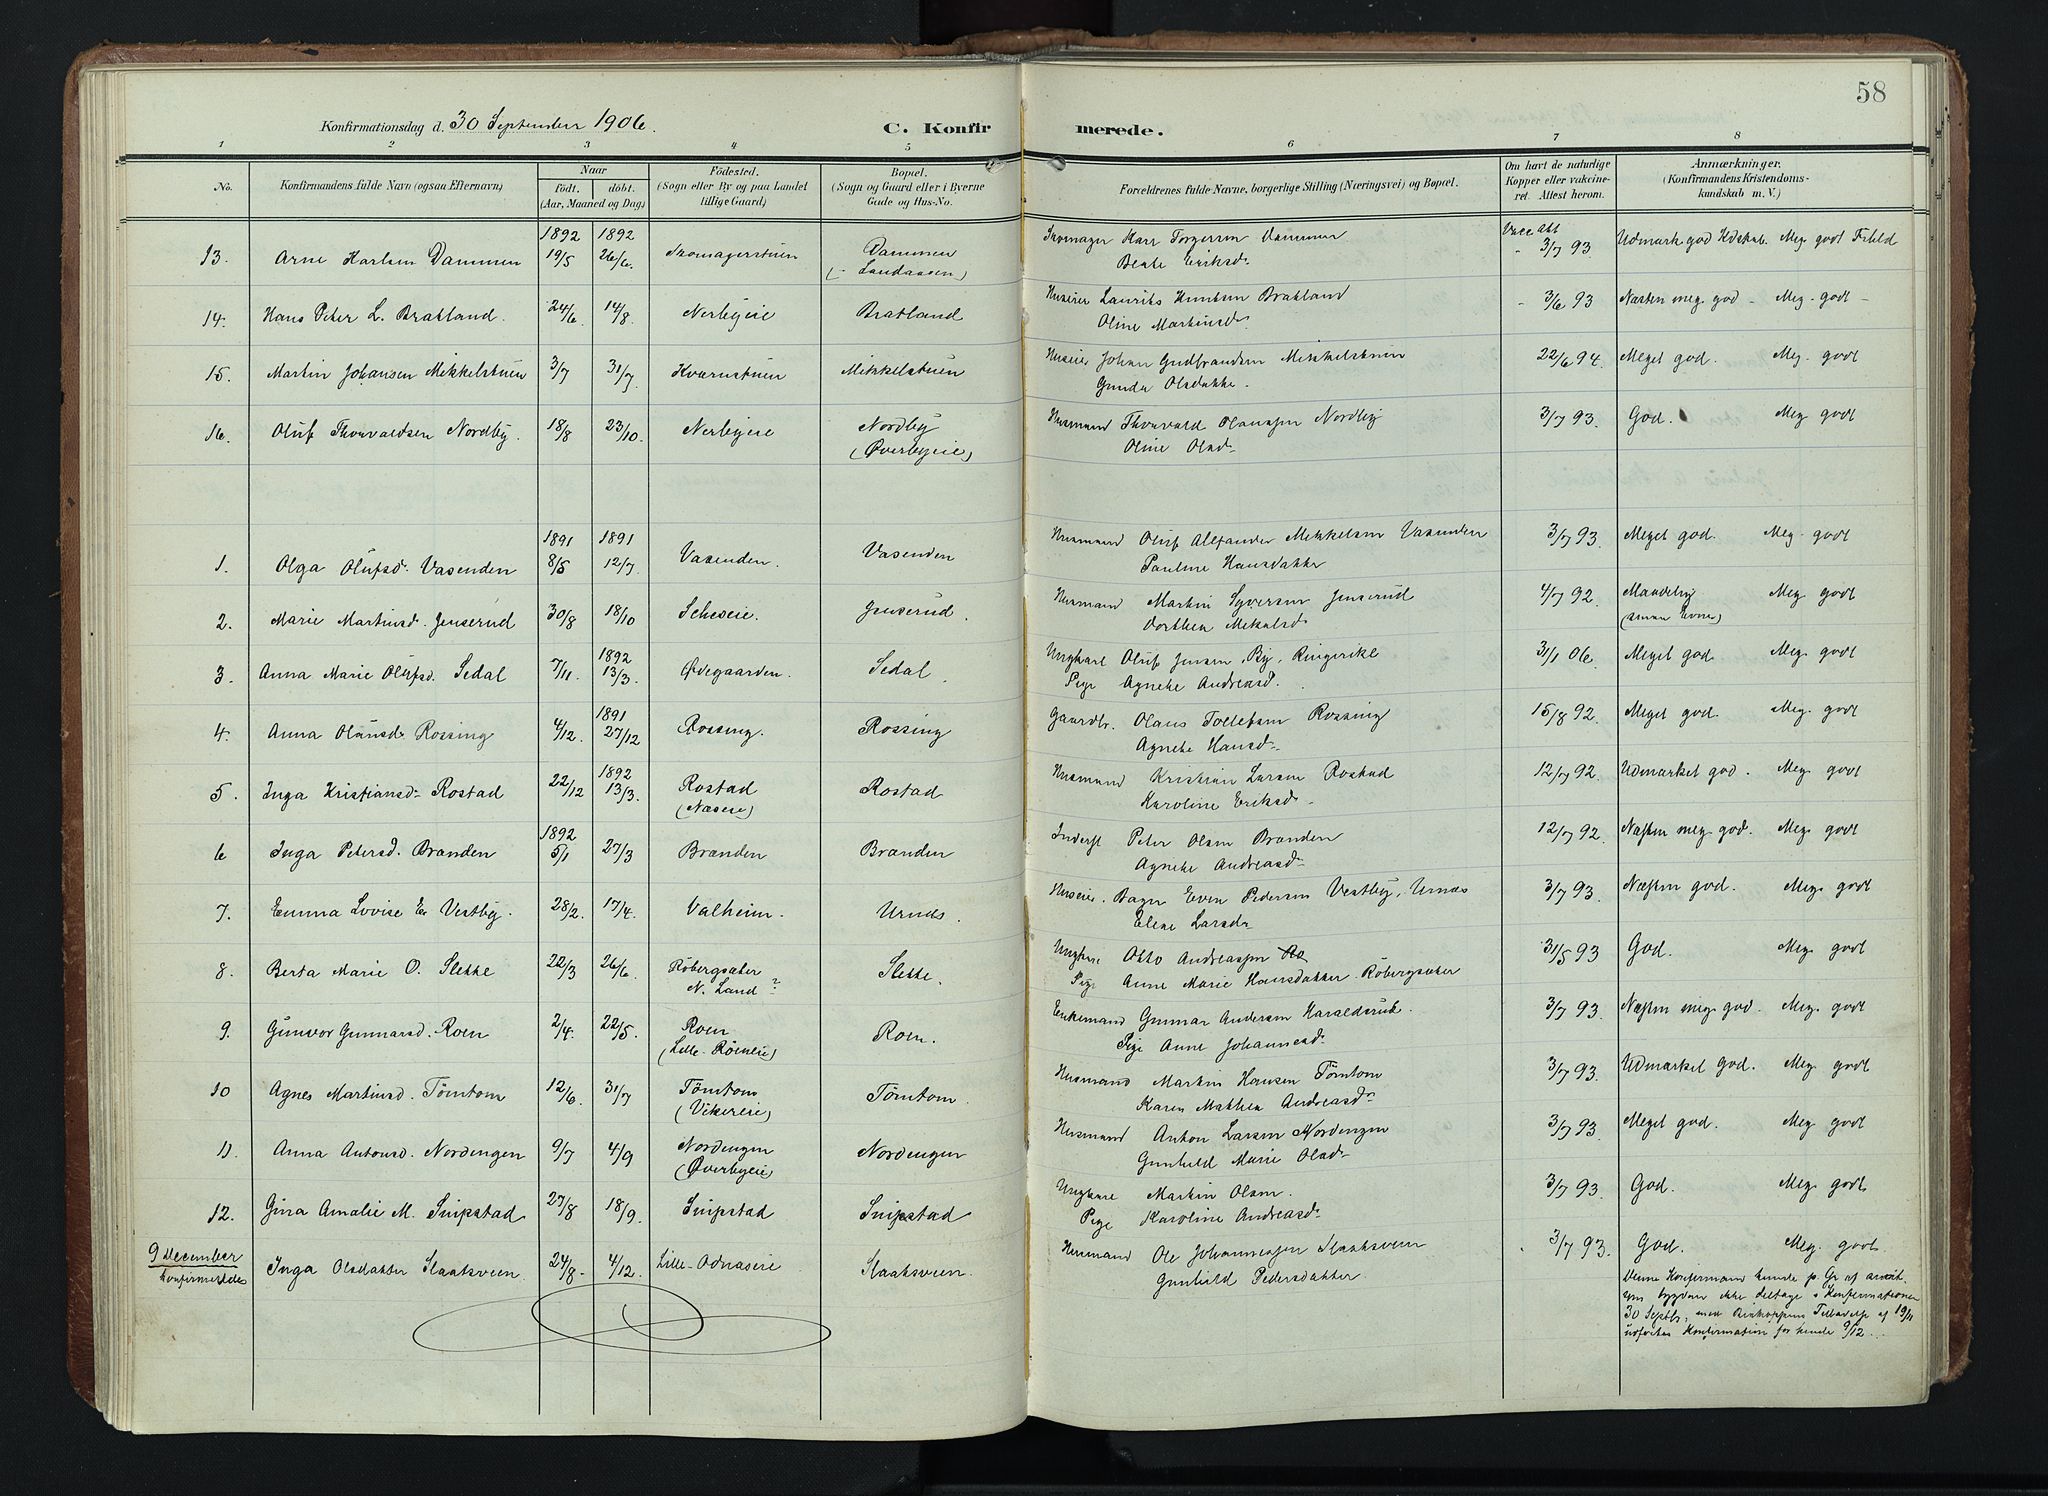 58
Konfirmationsdag d. 30 September 1906. C. Konfirmerede.
1 2 3 4 5 6 7 8
No. Konfirmandens fulde Navn (ogsaa Efternavn) Naar født. døbt. (Aar, Maaned og Dag) Fødested. (Sogn eller By og paa Landet tillige Gaard) Bopæl. (Sogn og Gaard eller i Byerne Gade og Hus-No. Forældrenes fulde Navne, borgerlige Stilling (Næringsvei) og Bopæl. Om havt de naturlige Kopper eller vakcineret. Attest herom. Anmærkninger. (Konfirmandens Kristendomskundskab m. V.)
1892 1892 Vacc. att
13. Arne Karlsen Dammen 19/5 26/6. Skomagerstuen Dammen Skomager Karl Torgersen Dammen 3/7 93 Udmark god Kdskab. Meg. godt Forhold
(Landaasen) Beate Eriksd.
14. Hans Peter L. Bratland. 24/6 14/8. Nerbyeie Bratland Huseier Laurits Knutsen Bratland 3/6 93 Næsten meg. god - Meg. godt -
Oline Martinsd.
15. Martin Johansen Mikkelstuen 3/7 31/7. Kvernstuen Mikkelstuen Huseier Johan Gudbrandsen Mikkelstuen 22/6 94. Meget god. Meg. godt
Gunda Olsdatter.
16. Oluf Thorvaldsen Nordby. 18/8 23/10. Nerbyeie Nordby Husmand Thorvald Olaussen Nordby 3/7 93. God. Meg. godt
(Øverbyeie) Oline Olsd.
1891 1891
1. Olga Olufsd. Vasenden 8/5 12/7 Vasenden. Vasenden Husmand Oluf Alexander Mikkelsen Vasenden 3/7 93. Meget god. Meg. godt
Pauline Hansdatter
2. Marie Martinsd. Jenserud 30/8 18/10 Scheseie. Jenserud. Husmand Martin Syversen Jenserud 4/7 92. Maadelig Meg. godt
Dorthea Mikalsd. (smaa Evner)
1892
3. Anna Marie Olufsd. Sedal 7/11. 13/3. Ødegaarden. Sedal. Ungkarl Oluf Jensen, By, Ringerike 31/1 06. Meget god. Meg. godt
Pige Agnete Andreasd.
1891
4. Anna Olausd. Rossing 4/12. 27/12 Rossing. Rossing Gaardbr. Olaus Tollefsen Rossing 15/8 92. Meget god. Meg. godt
Agnete Hansd.
1892
5. Inga Kristiansd. Rostad 22/12 13/3. Rostad Rostad Husmand Kristian Larsen Rostad 12/7 92. Udmarket god. Meg. godt
(Næseie) Karoline Eriksd.
1892
6 Inga Petersd. Branden 5/1 27/3 Branden Branden Inderst Peter Olsen Branden 12/7 92. Næsten meg. god. Meg. godt
Agnete Andreasd.
7. Emma Lovise Ev. Vestby. 28/2. 17/4. Valheim. Urnæs. Huseier. Bager Even Pedersen Vestby, Urnæs 3/7 93. Næsten god. Meg. godt
Elene Larsd.
8. Berta Marie O. Slette 22/3 26/6. Røbergsæter Slette. Ungkarl Otto Andreassen 31/5 93 God. Meg. godt
N. Land? Pige Anne Marie Hansdatter. Røbergsæter
9. Gunvor Gunnarsd. Roen 2/4. 22/5. Roen Roen. Enkemand Gunnar Andersen Haraldsrud. 3/7 93. Næsten meg. god. Meg. godt
(Lille-Røeneie) Pige Anne Johannesd.
10 Agnes Martinsd. Tømtom 12/6. 31/7 Tømtom Tømtom. Husmand Martin Hansen Tømtom 3/7 93. Udmarket god. Meg. godt
(Vikereie) Karen Mathea Andreasd.
11. Anna Antonsd. Nordengen 9/7 4/9 Nordengen Nordengen Husmand Anton Larsen Nordengen 3/7 93. Meget god. Meg. godt
(Øverbyeie) Gunhild Marie Olsd.
12. Gina Amalie M. Snipstad 27/8 18/9. Snipstad Snipstad Ungkarl Martin Olsen. 3/7 93. God. Meg. godt
Pige Karoline Andreasd.
9 December konfirmeredes Inga Olsdatter Slaatsveen. 24/8 4/12. Lille-Odnæseie Slaatsveen. Husmand Ole Johannessen Slaatsveen 3/7 93. God. Meg. godt.
Gunhild Pedersdatter.
Denne Konfirmand kunde p. Gr. af
ikke deltage i Konfirmationen
30 Septb., med Biskoppens Tilladelse af 19/11
udførtes Konfirmation for hende 9/12.